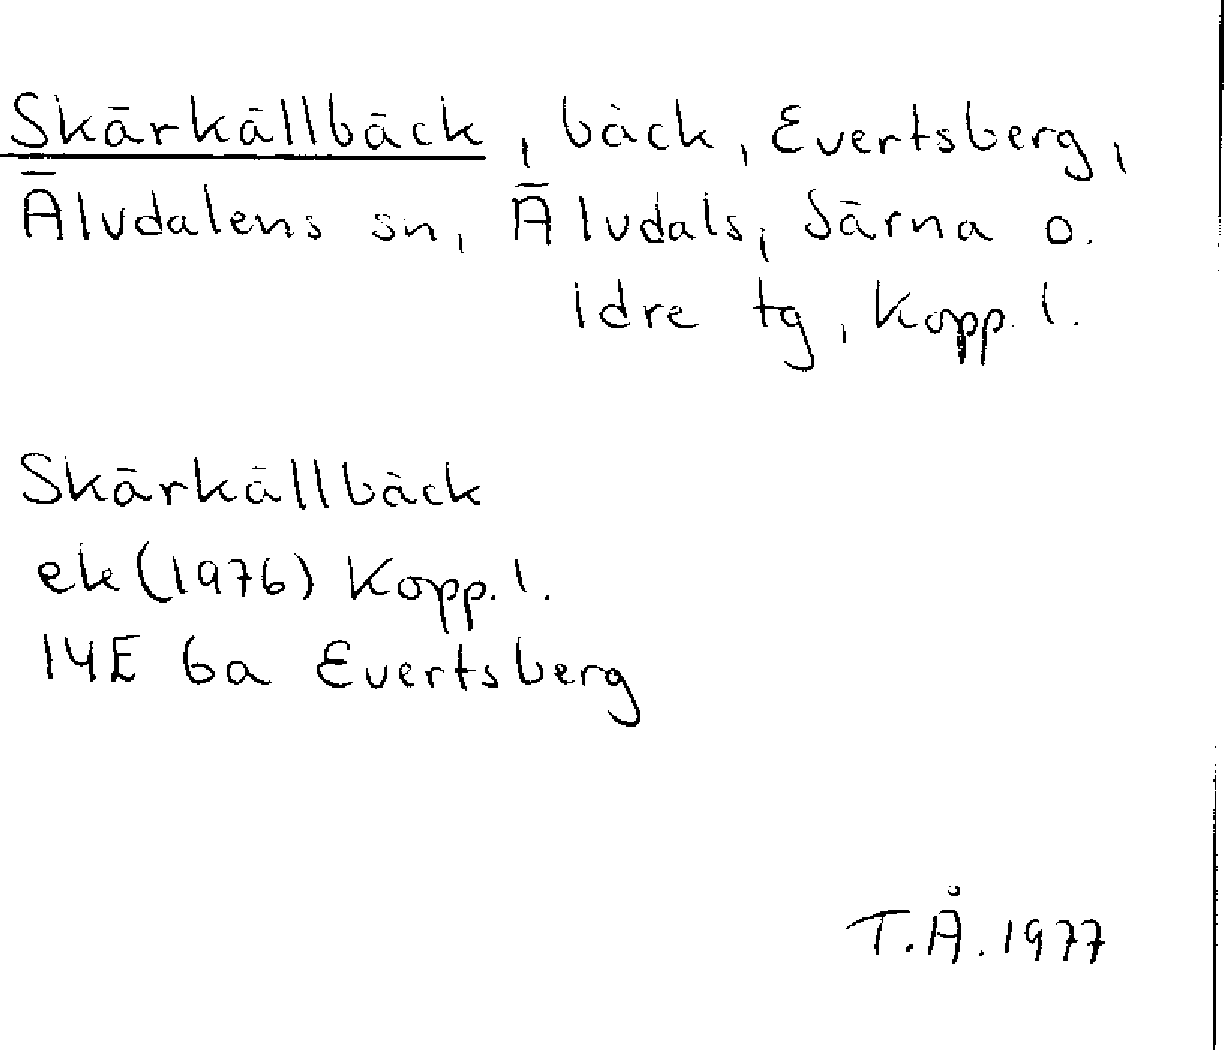 Skärkällbäck, bäck, Evertsberg,
Älvdalens sn, Älvdals, Särna o.
Idre tg, Kopp. l.
Skärkällbäck
ek (1976) Kopp. l.
14E 6a Evertsberg
T.Å. 1977